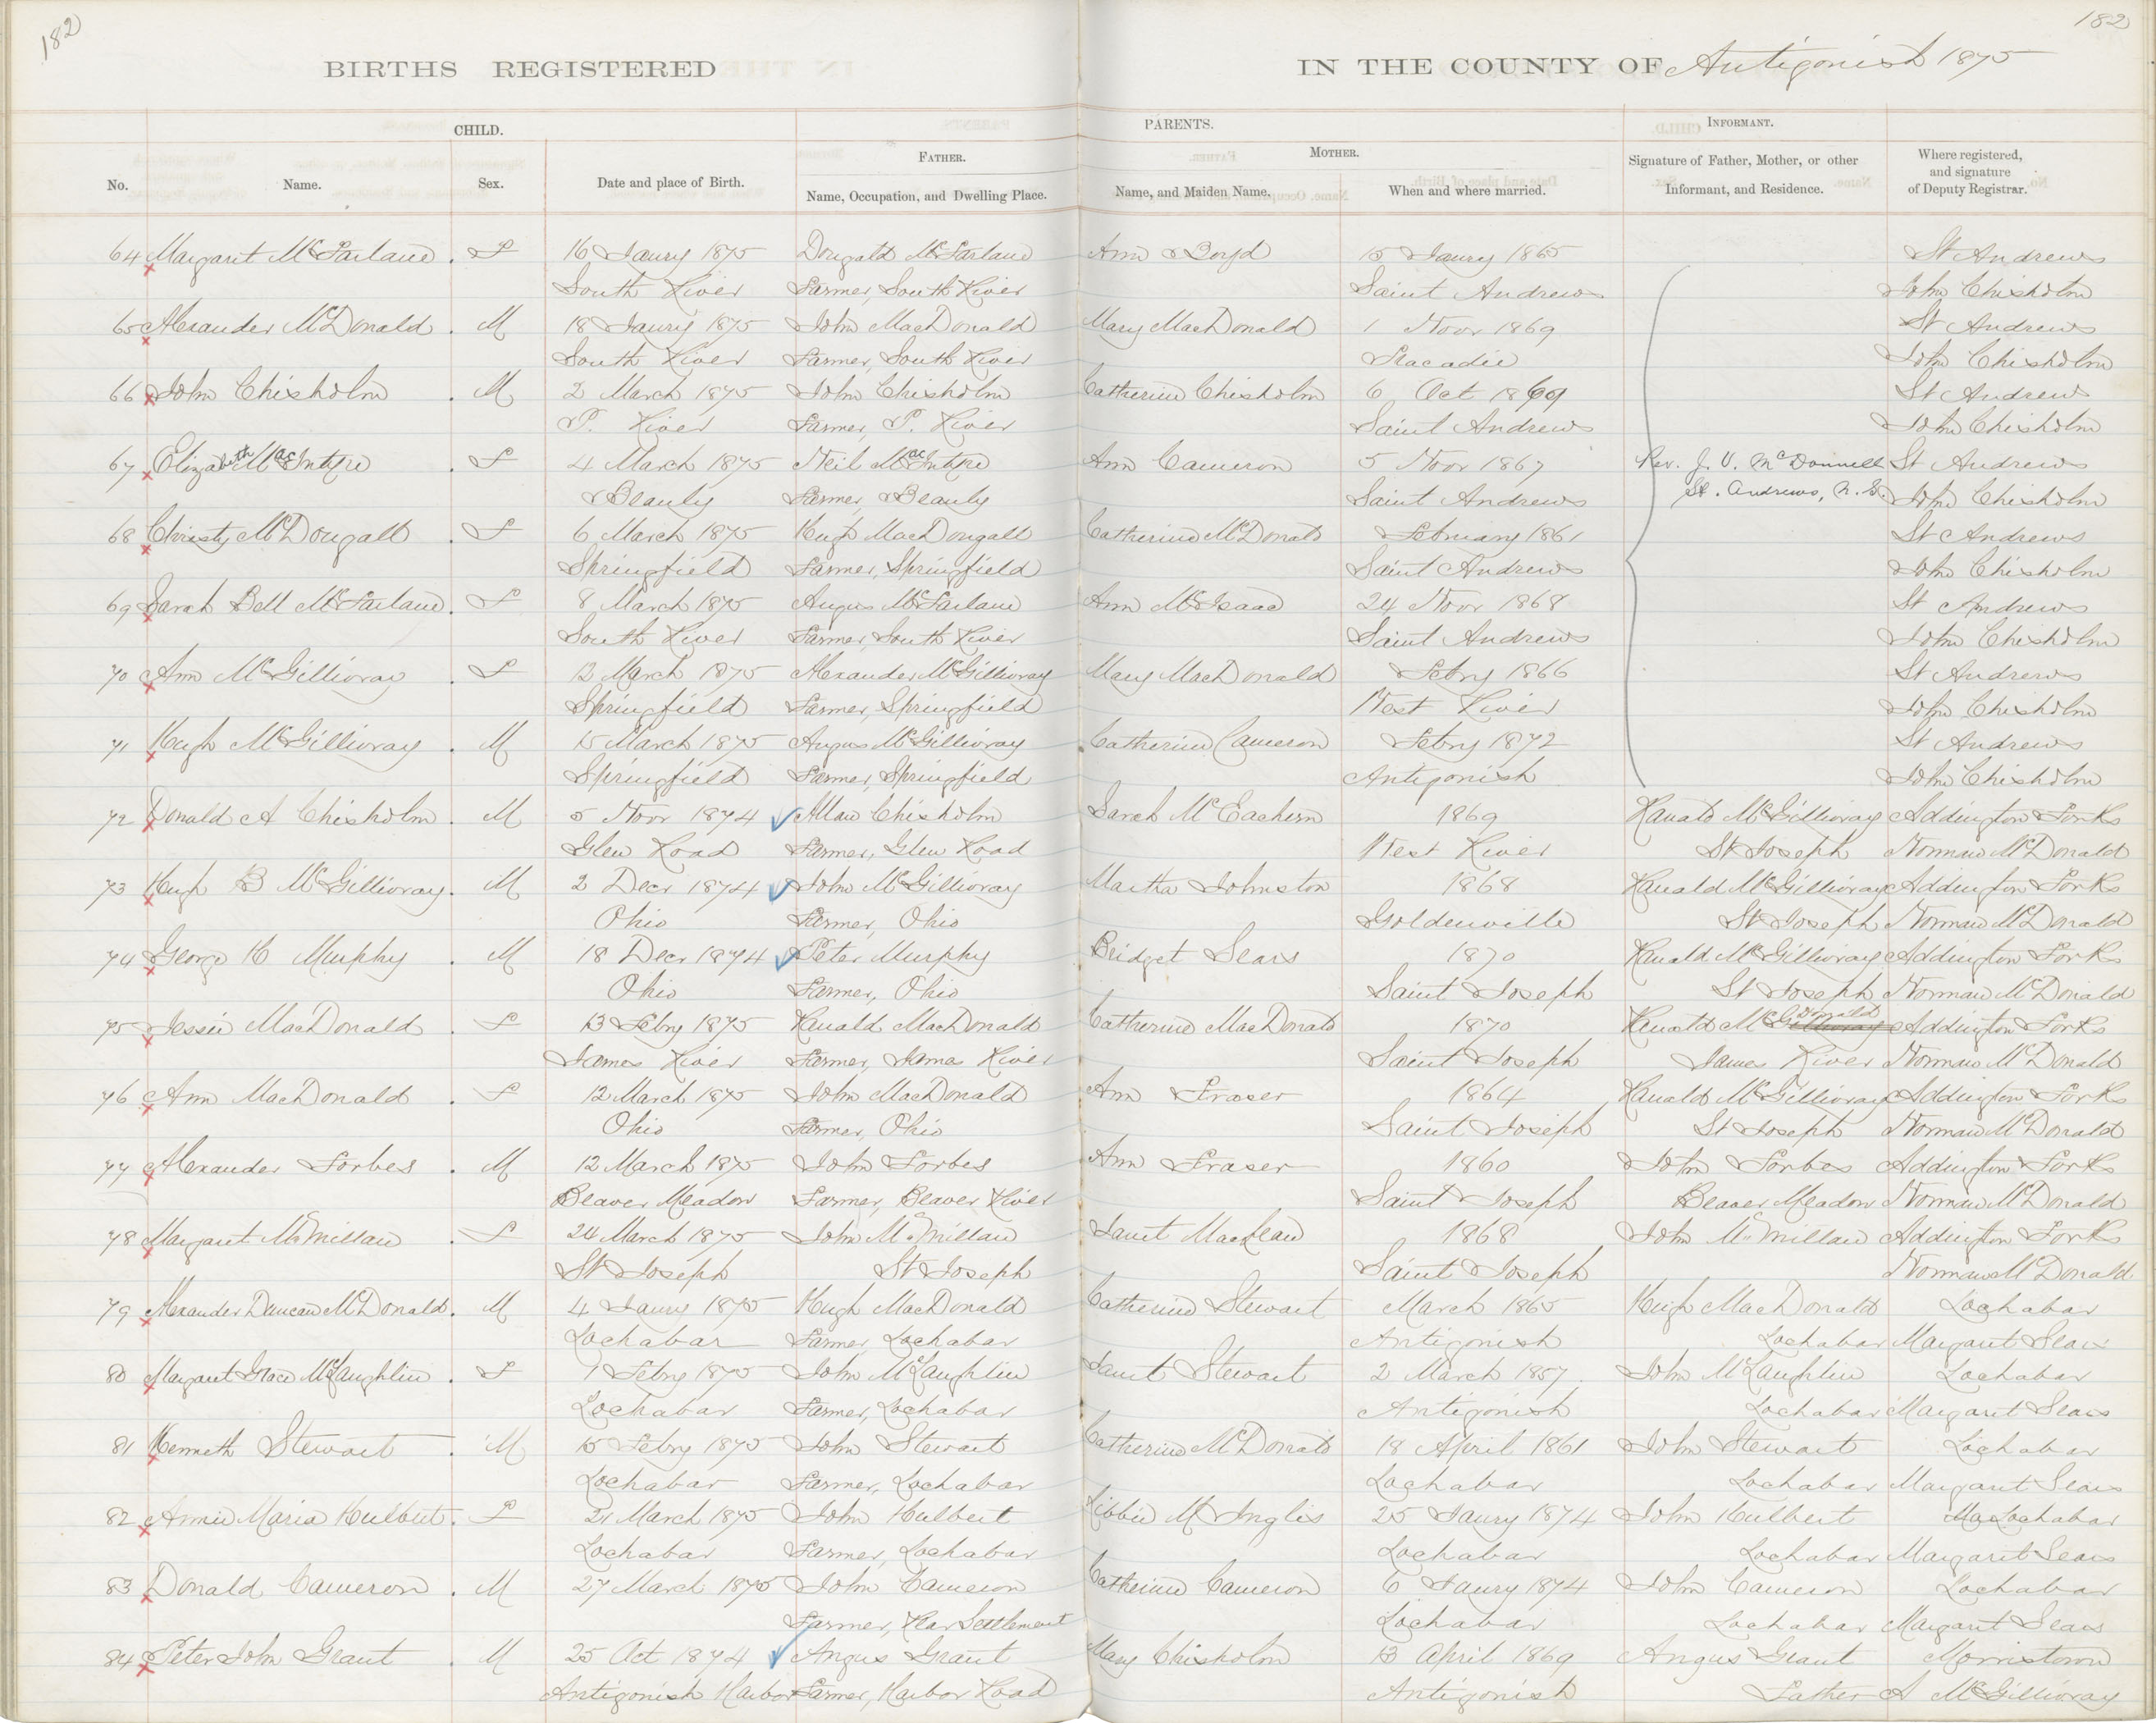 182
182
BIRTHS REGISTERED IN THE COUNTY OF Antigonish 1875
CHILD. PARENTS. INFORMANT.
FATHER. MOTHER.
No. Name. Sex. Date and place of Birth. Name, Occupation, and Dwelling Place. Name, and Maiden Name. When and where married. Signature of Father, Mother, or other Informant, and Residence. Where registered, and signature of Deputy Registrar.
64 Margaret McFarlane . F 16 Jaury 1875 Dougald McFarlane Ann Boyd 15 Jaury 1865 St Andrews
South River Farmer, South River Saint Andrews John Chisholm
65 Alexander McDonald . M 18 Jaury 1875 John MacDonald Mary MacDonald 1 Novr 1869 St Andrews
South River Farmer, South River Tracadie John Chisholm
66 John Chisholm . M 2 March 1875 John Chisholm Catherine Chisholm 6 Oct 1869 St Andrews
P. River Farmer, P. River Saint Andrews John Chisholm
67 Elizabeth MacIntyre . F 4 March 1875 Neil MacIntyre Ann Cameron 5 Novr 1867 Rev. J. V. McDonnell St Andrews
Beauly Farmer, Beauly Saint Andrews St. Andrews, N.S. John Chisholm
68 Christy McDougall . F 6 March 1875 Hugh MacDougall Catherine McDonald February 1861 St Andrews
Springfield Farmer, Springfield Saint Andrews John Chisholm
69 Sarah Bell McFarlane . F 8 March 1875 Angus McFarlane Ann McIsaac 24 Novr 1868 St Andrews
South River Farmer, South River Saint Andrews John Chisholm
70 Ann McGillivray . F 12 March 1875 Alexander McGillivray Mary MacDonald Febry 1866 St Andrews
Springfield Farmer, Springfield West River John Chisholm
71 Hugh McGillivray . M 15 March 1875 Angus McGillivray Catherine Cameron Febry 1872 St Andrews
Springfield Farmer, Springfield Antigonish John Chisholm
72 Donald A Chisholm . M 5 Novr 1874 Allan Chisholm Sarah McEachern 1869 Ranald McGillivray Addington Forks
Glen Road Farmer, Glen Road West River St Joseph Norman McDonald
73 Hugh B McGillivray . M 2 Decr 1874 John McGillivray Martha Johnston 1868 Ranald McGillivray Addington Forks
Ohio Farmer, Ohio Goldenville St Joseph Norman McDonald
74 George H Murphy . M 18 Decr 1874 Peter Murphy Bridget Sears 1870 Ranald McGillivray Addington Forks
Ohio Farmer, Ohio Saint Joseph St Joseph Norman McDonald
75 Jessie MacDonald . F 13 Febry 1875 Ranald MacDonald Catherine MacDonald 1870 Ranald McGillivray Donald Addington Forks
James River Farmer, James River Saint Joseph James River Norman McDonald
76 Ann MacDonald . F 12 March 1875 John MacDonald Ann Fraser 1864 Ranald McGillivray Addington Forks
Ohio Farmer, Ohio Saint Joseph St Joseph Norman McDonald
77 Alexander Forbes . M 12 March 1875 John Forbes Ann Fraser 1860 John Forbes Addington Forks
Beaver Meadow Farmer, Beaver River Saint Joseph Beaver Meadow Norman McDonald
78 Margaret McMillan . F 24 March 1875 John McMillan Janet MacLean 1868 John McMillan Addington Forks
St Joseph St Joseph Saint Joseph Norman McDonald
79 Alexander Duncan McDonald . M 4 Jaury 1875 Hugh MacDonald Catherine Stewart March 1865 Hugh MacDonald Lochabar
Lochabar Farmer, Lochabar Antigonish Lochabar Margaret Sears
80 Margaret Grace McLaughlin . F 1 Febry 1875 John McLaughlin Janet Stewart 2 March 1857 John McLaughlin Lochabar
Lochabar Farmer, Lochabar Antigonish Lochabar Margaret Sears
81 Kenneth Stewart . M 15 Febry 1875 John Stewart Catherine McDonald 18 April 1861 John Stewart Lochabar
Lochabar Farmer, Lochabar Lochabar Lochabar Margaret Sears
82 Annie Maria Hulbert . F 21 March 1875 John Hulbert Libbie M Inglis 25 Jaury 1874 John Hulbert Lochabar
Lochabar Farmer, Lochabar Lochabar Lochabar Margaret Sears
83 Donald Cameron . M 27 March 1875 John Cameron Catherine Cameron 6 Jaury 1874 John Cameron Lochabar
Farmer, Rear Settlement Lochabar Lochabar Margaret Sears
84 Peter John Grant . M 25 Oct 1874 Angus Grant Mary Chisholm 13 April 1869 Angus Grant Morristown
Antigonish Harbor Farmer, Harbor Road Antigonish Father A McGillivray